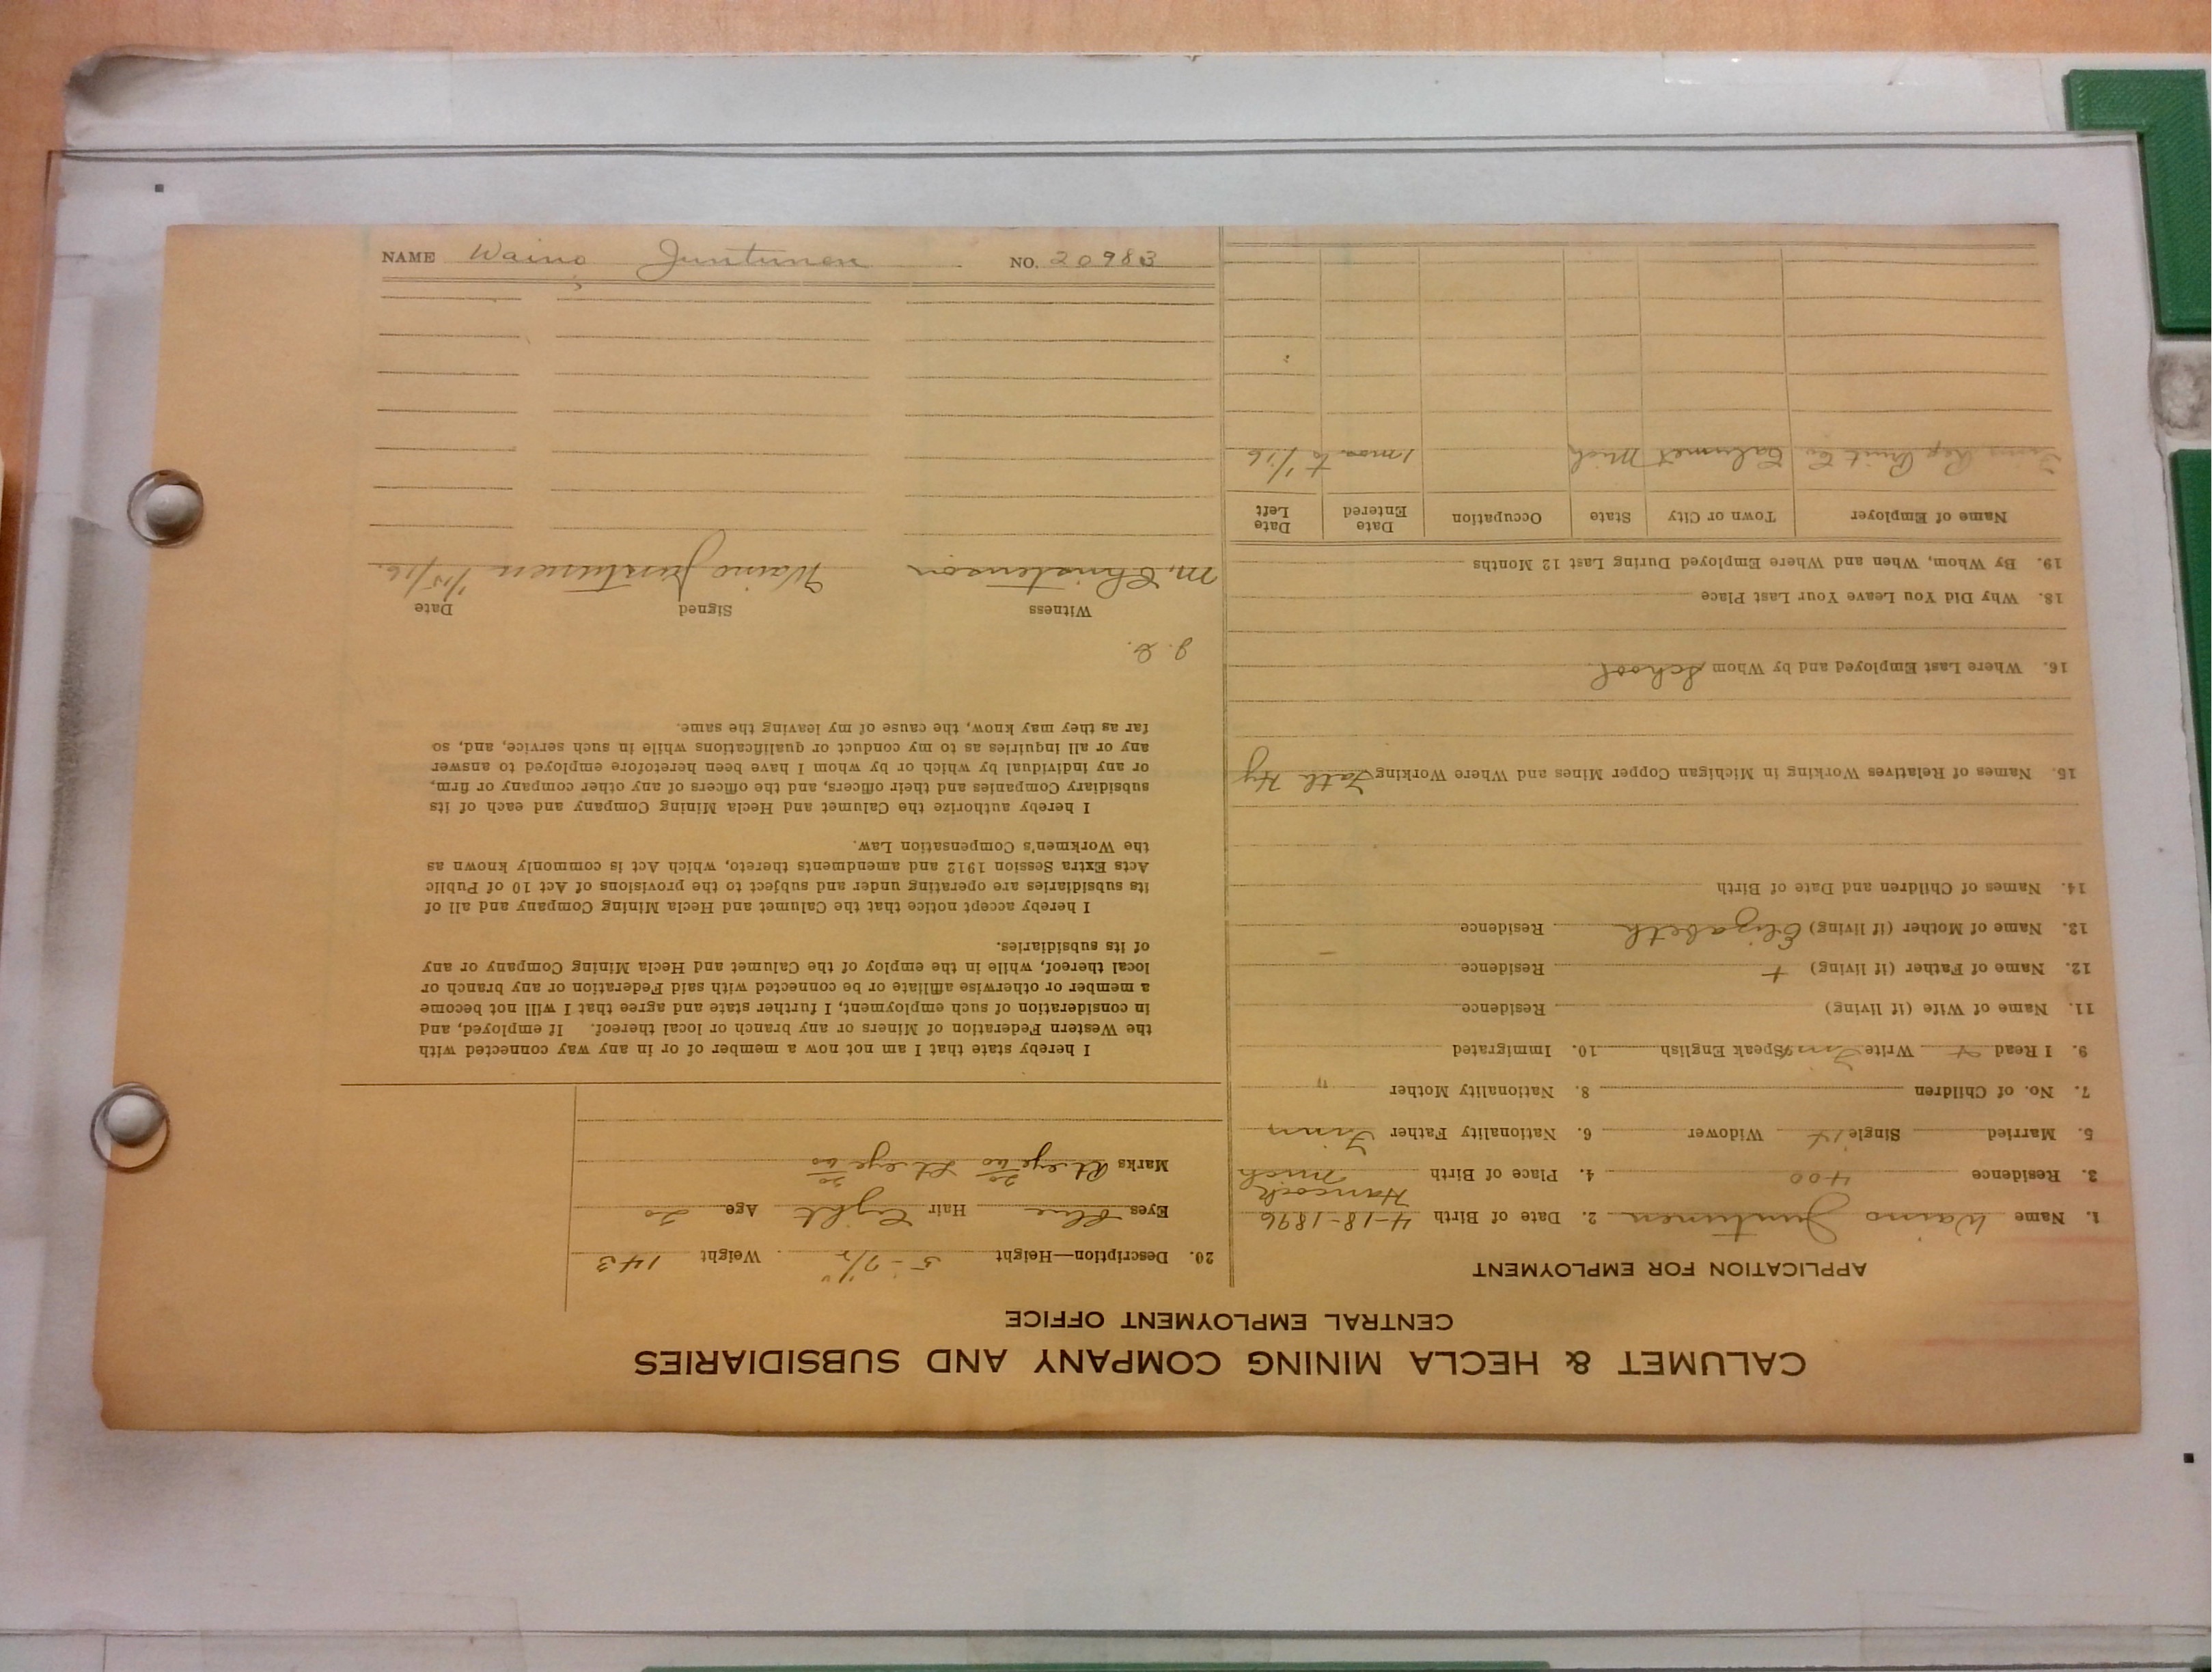 CALUMET & HECLA MINING COMPANY AND SUBSIDIARIES
CENTRAL EMPLOYMENT OFFICE
APPLICATION FOR EMPLOYMENT
1. Name Waino Juntunen 2. Date of Birth 4-18-1896
3. Residence 400 4. Place of Birth Hancock Mich
5. Married Single Widower 6. Nationality Father Finn
7. No. of Children 8. Nationality Mother "
9. I Read Write Speak English 10. Immigrated
11. Name of Wife (if living) Residence
12. Name of Father (if living) + Residence
13. Name of Mother (if living) Elizabeth Residence
14. Names of Children and Date of Birth
15. Names of Relatives Working in Michigan Copper Mines and Where Working
16. Where Last Employed and by Whom School
18. Why Did You Leave Your Last Place
19. By Whom, When and Where Employed During Last 12 Months
Name of Employer Town or City State Occupation Date Entered Date Left
Calumet Mich 1 mos to 1/16
20. Description—Height 5-7 1/2" Weight 143
Eyes Blue Hair Light Age 20
Marks Rt eye 20/60 Lt eye 20/60
I hereby state that I am not now a member of or in any way connected with
the Western Federation of Miners or any branch or local thereof. If employed, and
in consideration of such employment, I further state and agree that I will not become
a member or otherwise affiliate or be connected with said Federation or any branch or
local thereof, while in the employ of the Calumet and Hecla Mining Company or any
of its subsidiaries.
I hereby accept notice that the Calumet and Hecla Mining Company and all of
its subsidiaries are operating under and subject to the provisions of Act 10 of Public
Acts Extra Session 1912 and amendments thereto, which Act is commonly known as
the Workmen's Compensation Law.
I hereby authorize the Calumet and Hecla Mining Company and each of its
subsidiary Companies and their officers, and the officers of any other company or firm,
or any individual by which or by whom I have been heretofore employed to answer
any or all inquiries as to my conduct or qualifications while in such service, and, so
far as they may know, the cause of my leaving the same.
Witness Signed Date
M. Christenson Waino Juntunen 1/15/16
NAME Waino Juntunen NO. 20983